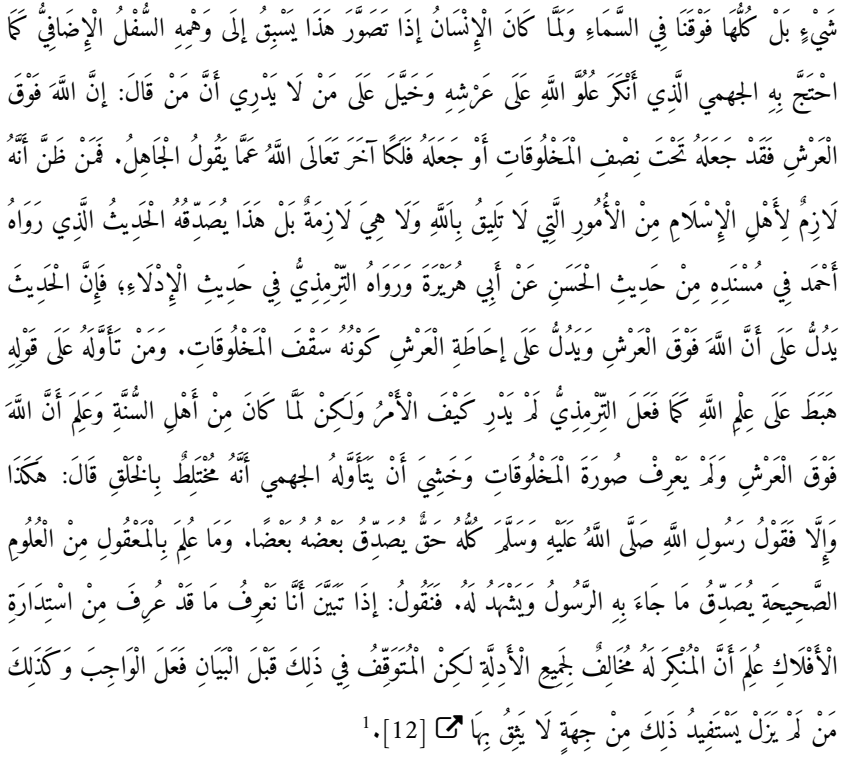 شَيْءٍ بَلْ كُلُّهَا فَوْقَنَا فِي السَّمَاءِ وَلَمَّا كَانَ الْإِنْسَانُ إذَا تَصَوَّرَ هَذَا يَسْبِقُ إلَى وَهْمِهِ السُّفْلُ الْإِضَافِيُّ كَمَا
احْتَجَّ بِهِ الجهمي الَّذِي أَنْكَرَ عُلُوَّ اللَّهِ عَلَى عَرْشِهِ وَخَيَّلَ عَلَى مَنْ لَا يَدْرِي أَنَّ مَنْ قَالَ: إنَّ اللَّهَ فَوْقَ
الْعَرْشِ فَقَدْ جَعَلَهُ تَحْتَ نِصْفِ الْمَخْلُوقَاتِ أَوْ جَعَلَهُ فَلَكًا آخَرَ تَعَالَى اللَّهُ عَمَّا يَقُولُ الْجَاهِلُ. فَمَنْ ظَنَّ أَنَّهُ
لَازِمٌ لِأَهْلِ الْإِسْلَامِ مِنْ الْأُمُورِ الَّتِي لَا تَلِيقُ بِاَللَّهِ وَلَا هِيَ لَازِمَةٌ بَلْ هَذَا يُصَدِّقُهُ الْحَدِيثُ الَّذِي رَوَاهُ
أَحْمَد فِي مُسْنَدِهِ مِنْ حَدِيثِ الْحَسَنِ عَنْ أَبِي هُرَيْرَةَ وَرَوَاهُ التِّرْمِذِيُّ فِي حَدِيثِ الْإِدْلَاءِ؛ فَإِنَّ الْحَدِيثَ
يَدُلُّ عَلَى أَنَّ اللَّهَ فَوْقَ الْعَرْشِ وَيَدُلُّ عَلَى إحَاطَةِ الْعَرْشِ كَوْنُهُ سَقْفَ الْمَخْلُوقَاتِ. وَمَنْ تَأَوَّلَهُ عَلَى قَوْلِهِ
هَبَطَ عَلَى عِلْمِ اللَّهِ كَمَا فَعَلَ التِّرْمِذِيُّ لَمْ يَدْرِ كَيْفَ الْأَمْرُ وَلَكِنْ لَمَّا كَانَ مِنْ أَهْلِ السُّنَّةِ وَعَلِمَ أَنَّ اللَّهَ
فَوْقَ الْعَرْشِ وَلَمْ يَعْرِفْ صُورَةَ الْمَخْلُوقَاتِ وَخَشِيَ أَنْ يَتَأَوَّلهُ الجهمي أَنَّهُ مُخْتَلِطٌ بِالْخَلْقِ قَالَ: هَكَذَا
وَإِلَّا فَقَوْلُ رَسُولِ اللَّهِ صَلَّى اللَّهُ عَلَيْهِ وَسَلَّمَ كُلُّهُ حَقٌّ يُصَدِّقُ بَعْضُهُ بَعْضًا. وَمَا عُلِمَ بِالْمَعْقُولِ مِنْ الْعُلُومِ
الصَّحِيحَةِ يُصَدِّقُ مَا جَاءَ بِهِ الرَّسُولُ وَيَشْهَدُ لَهُ. فَنَقُولُ: إذَا تَبَيَّنَ أَنَّا نَعْرِفُ مَا قَدْ عُرِفَ مِنْ اسْتِدَارَةِ
الْأَفْلَاكِ عُلِمَ أَنَّ الْمُنْكِرَ لَهُ مُخَالِفٌ لِجَمِيعِ الْأَدِلَّةِ لَكِنْ الْمُتَوَقِّفُ فِي ذَلِكَ قَبْلَ الْبَيَانِ فَعَلَ الْوَاجِبَ وَكَذَلِكَ
مَنْ لَمْ يَزَلْ يَسْتَفِيدُ ذَلِكَ مِنْ جِهَةٍ لَا يَثِقُ بِهَا [12].¹